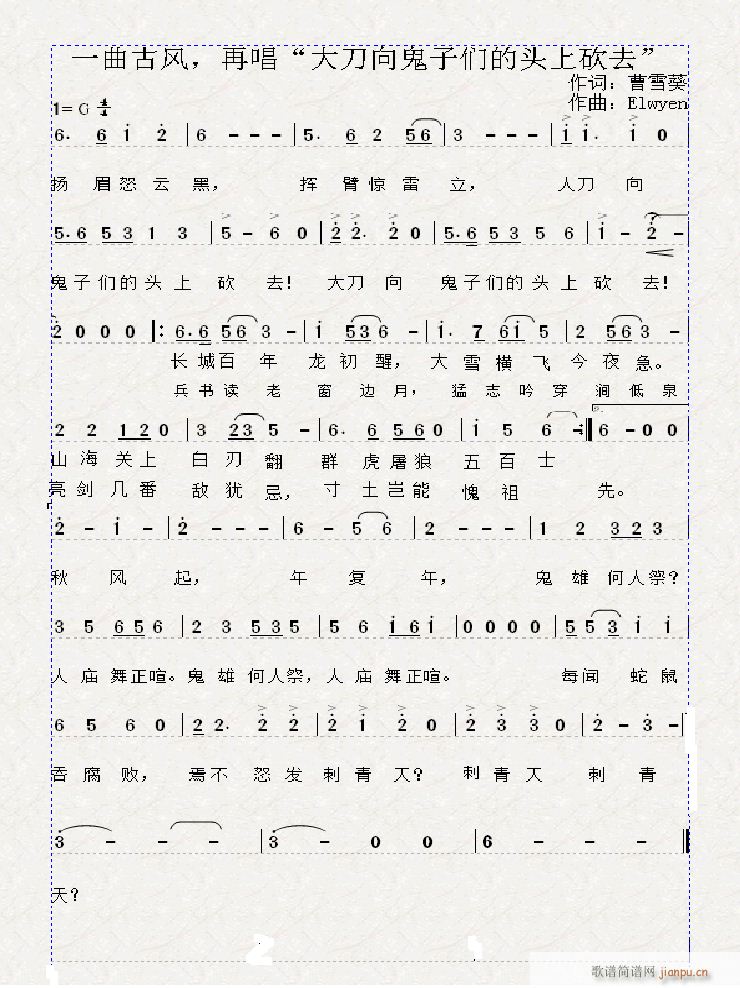 一曲古风，再唱“大刀向鬼子们的头上砍去”
作词：曹雪葵
作曲：Elwyen
1= G 4/4
6. 6 1 2 | 6 - - - | 5. 6 2 56 | 3 - - - | 1 1. 1 0
扬眉怒云黑， 挥臂惊雷立， 大刀向
5.6 53 1 3 | 5 - 6 0 | 2 2. 2 0 | 5.6 53 5 6 | 1 - 2 -
鬼子们的头上砍去！ 大刀向 鬼子们的头上砍去！
2 0 0 0 |: 6.6 56 3 - | 1 536 - | 1. 7 61 5 | 2 563 -
长城百年龙初醒， 大雪横飞今夜急。
兵书读老窗边月， 猛志吟穿涧低泉
2 2 120 | 3 23 5 - | 6. 6 5660 | 1 5 6 - :| 2. 6 - 0 0
山海关上白刃翻 群虎屠狼五百士
亮剑几番敌犹忌， 寸土岂能愧祖先。
2 - 1 - | 2 - - - | 6 - 5 6 | 2 - - - | 1 2 323
秋风起， 年复年， 鬼雄何人祭？
3 5 656 | 2 3 535 | 5 6 161 | 0 0 0 0 | 553 1 1
人庙舞正喧。鬼雄何人祭，人庙舞正喧。 每闻蛇鼠
6 5 6 0 | 2 2. 2 2 | 2 1 2 0 | 2 3 3 0 | 2 - 3 -
吞腐败， 焉不怒发刺青天？ 刺青天 刺青
3 - - - | 3 - 0 0 | 6 - - -
天？
2
歌谱简谱网 jianpu.cn